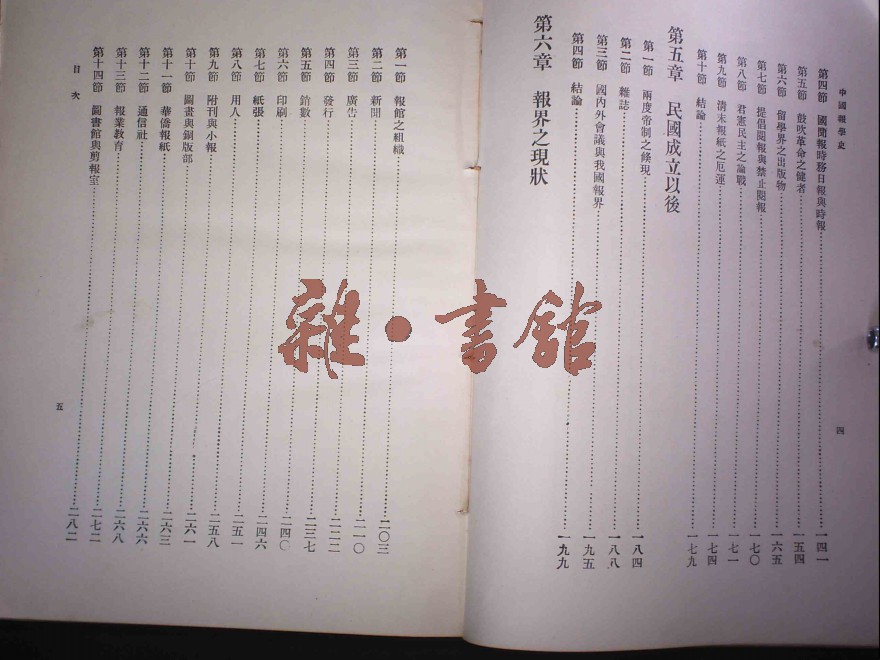 中國報學史
第四節 國聞報時務日報與時報……一四一
第五節 鼓吹革命之健者……一五四
第六節 留學界之出版物……一六五
第七節 提倡閱報與禁止閱報……一七〇
第八節 君憲民主之論戰……一七一
第九節 清末報紙之厄運……一七四
第十節 結論……一七九
第五章 民國成立以後
第一節 兩度帝制之倏現……一八四
第二節 雜誌……一八八
第三節 國內外會議與我國報界……一九五
第四節 結論……一九九
第六章 報界之現狀
四
第一節 報館之組織……二〇三
第二節 新聞……二一〇
第三節 廣告……二二二
第四節 發行……二三七
第五節 銷數……二四〇
第六節 印刷……二四六
第七節 紙張……二五一
第八節 用人……二五八
第九節 附刊與小報……二六一
第十節 圖畫與銅版部……二六三
第十一節 華僑報紙……二六六
第十二節 通信社……二六八
第十三節 報業教育……二七二
第十四節 圖書館與剪報室……二八二
目次
五
雜·書館